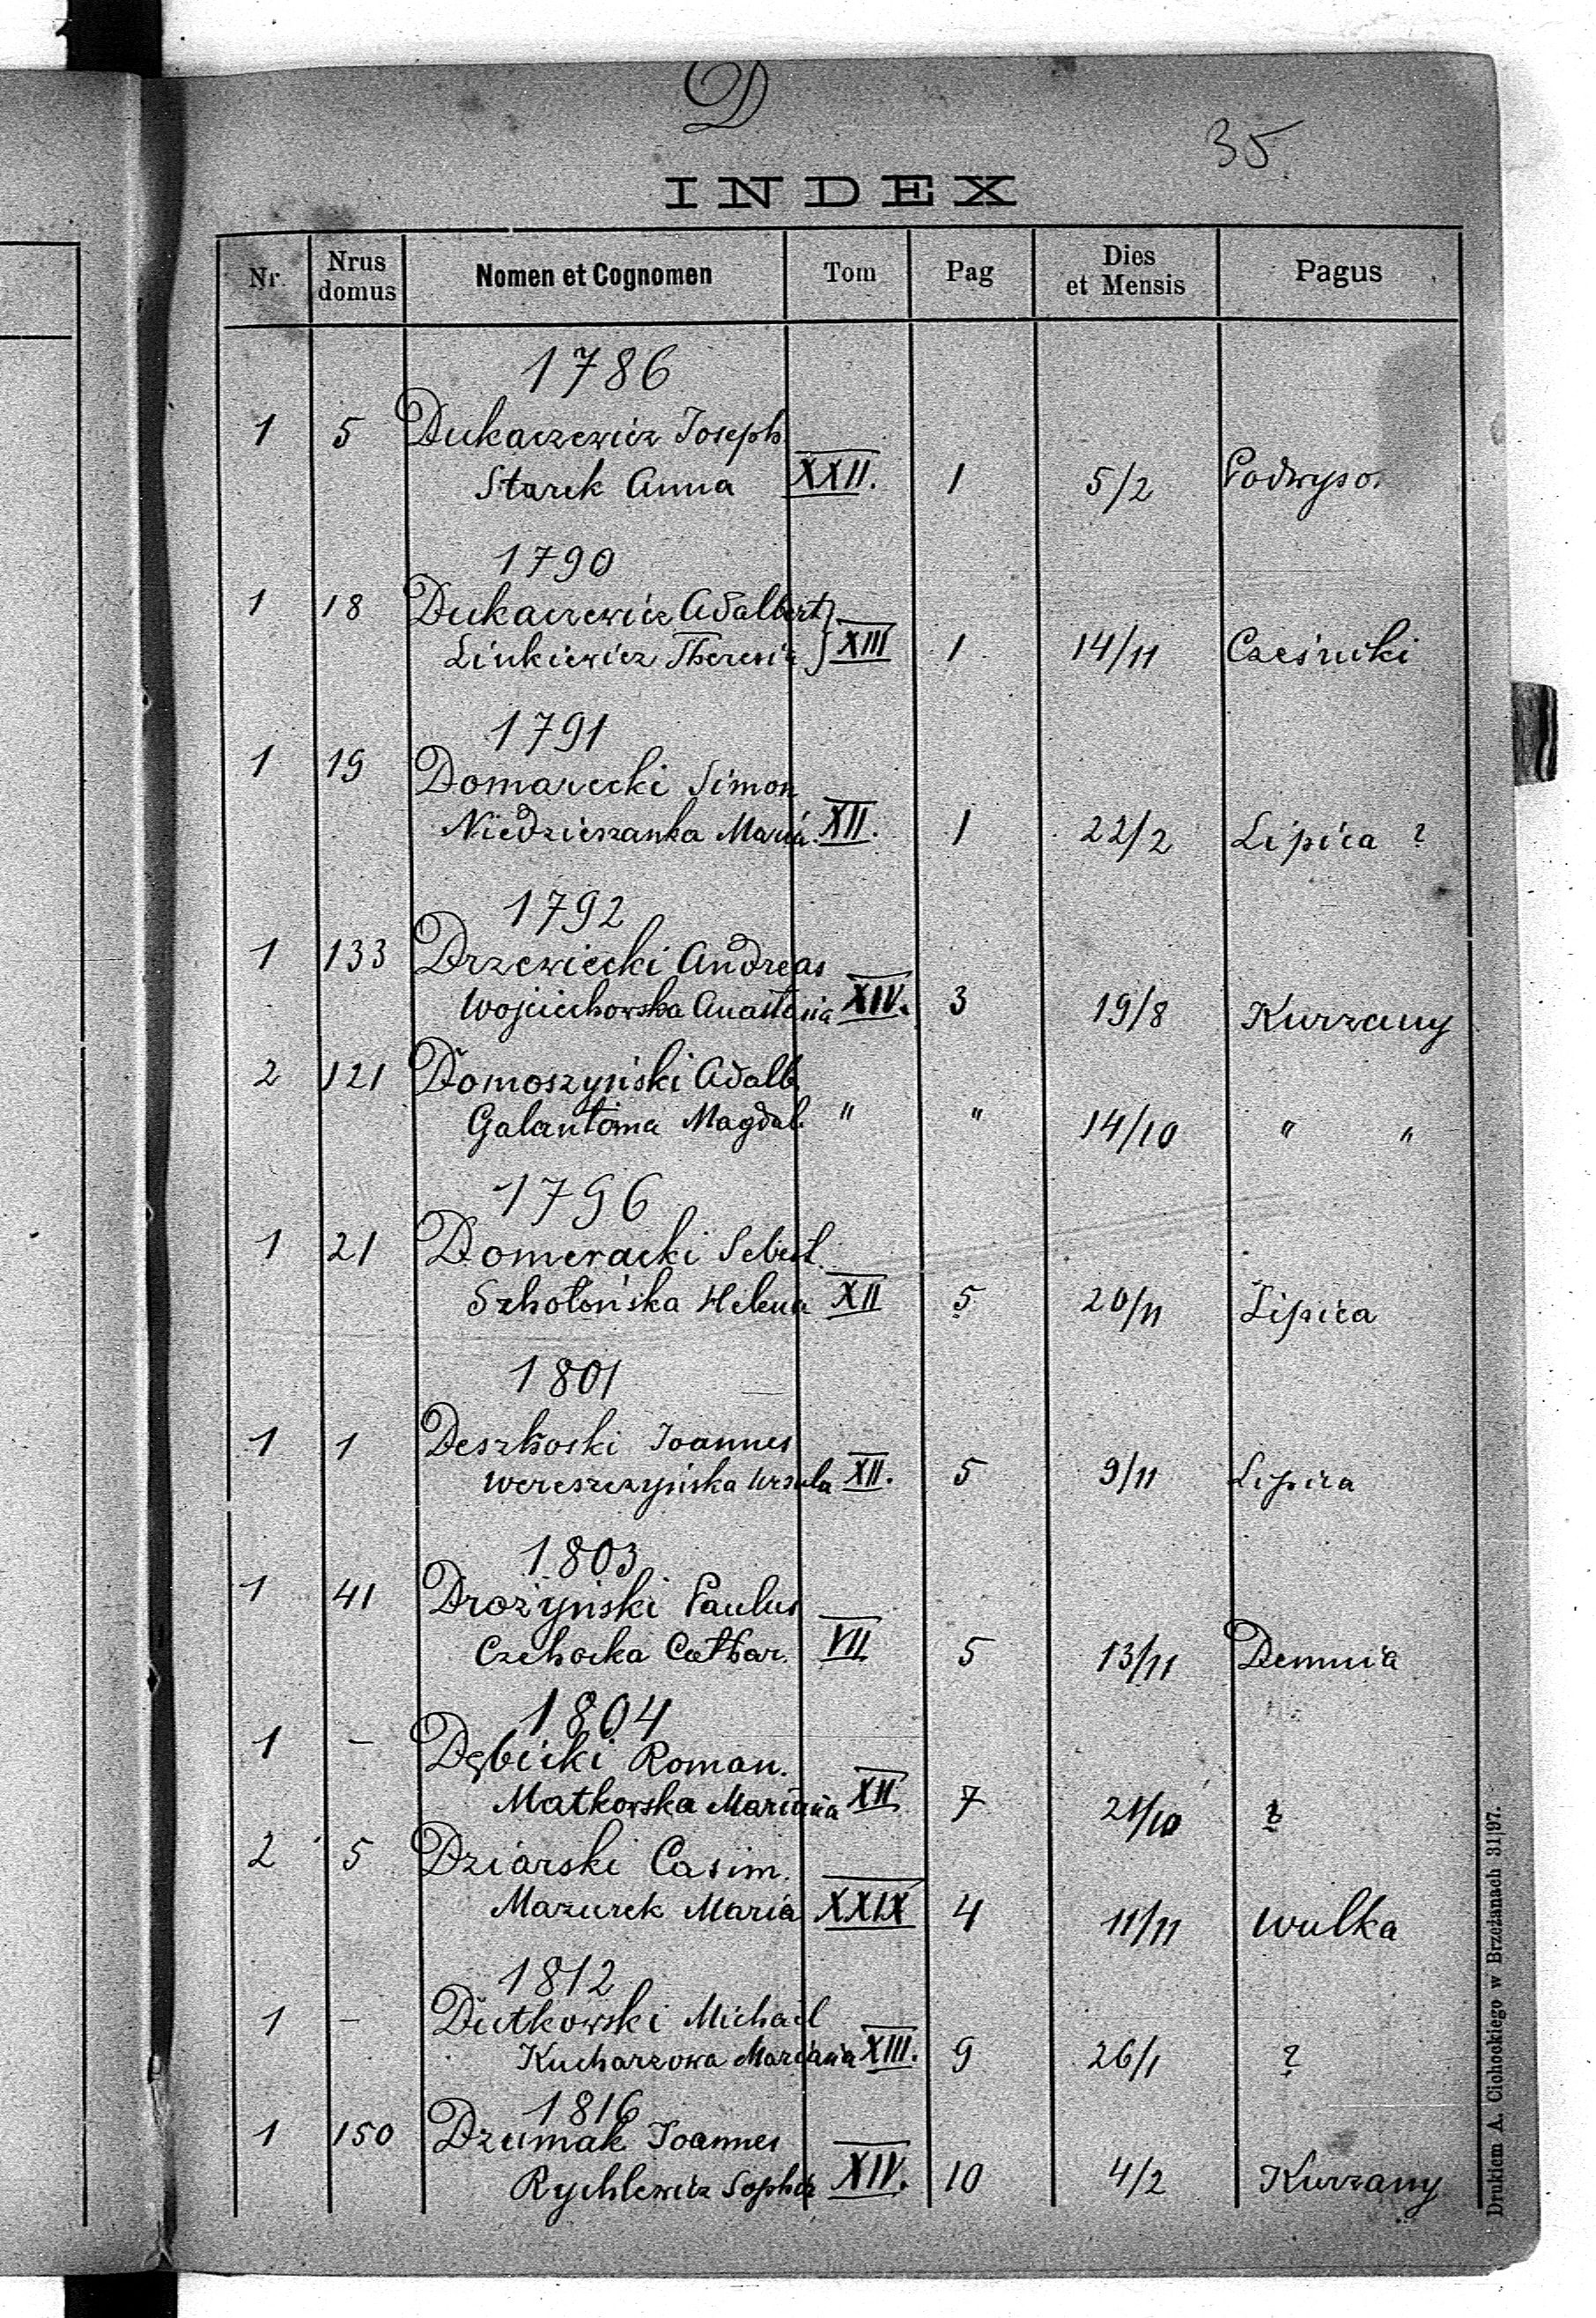 D
35.
INDEX
Nr. Nrus domus Nomen et Cognomen Tom Pag Dies et Mensis Pagus
1786
1 5 Dukaczewicz Joseph
Starek Anna XXII. 1 5/2 Podwyso.
1790
1 18 Dukaczewicz Adalbert
Linkiewicz Theresia XIII 1 14/11 Cześniki
1791
1 19 Domarecki Simon
Niedzieszanka Maria XII. 1 22/2 Lipica ?
1792
1 133 Drzewiecki Andreas
Wojciechowska Anastasia XIV. 3 19/8 Kurzany
2 121 Domoszyński Adalb.
Galantoma Magdal. " " 14/10 " "
1796
1 21 Domeracki Sebest.
Szhołońska Helena XII 5 20/11 Lipica
1801
1 1 Joannes
Wereszczyńska Ursula XII. 5 9/11 Lipica
1803
1 41 Drożyński Paulus
Czehocka Cathar. VII 5 13/11 Demnia
1804
1 - Dębicki Roman.
Matkowska Marianna XII 7 21/10 ?
2 5 Dziarski Casim.
Mazurek Maria XXIX 4 11/11 Wulka
1812
1 - Dutkowski Michael
Kucharzowa Marianna XIII. 9 26/1 ?
1816
1 150 Dzumak Joannes
Rychlewicz Sophia XIV. 10 4/2 Kurzany
Drukiem A. Cichockiego w Brzeżanach 31|97.